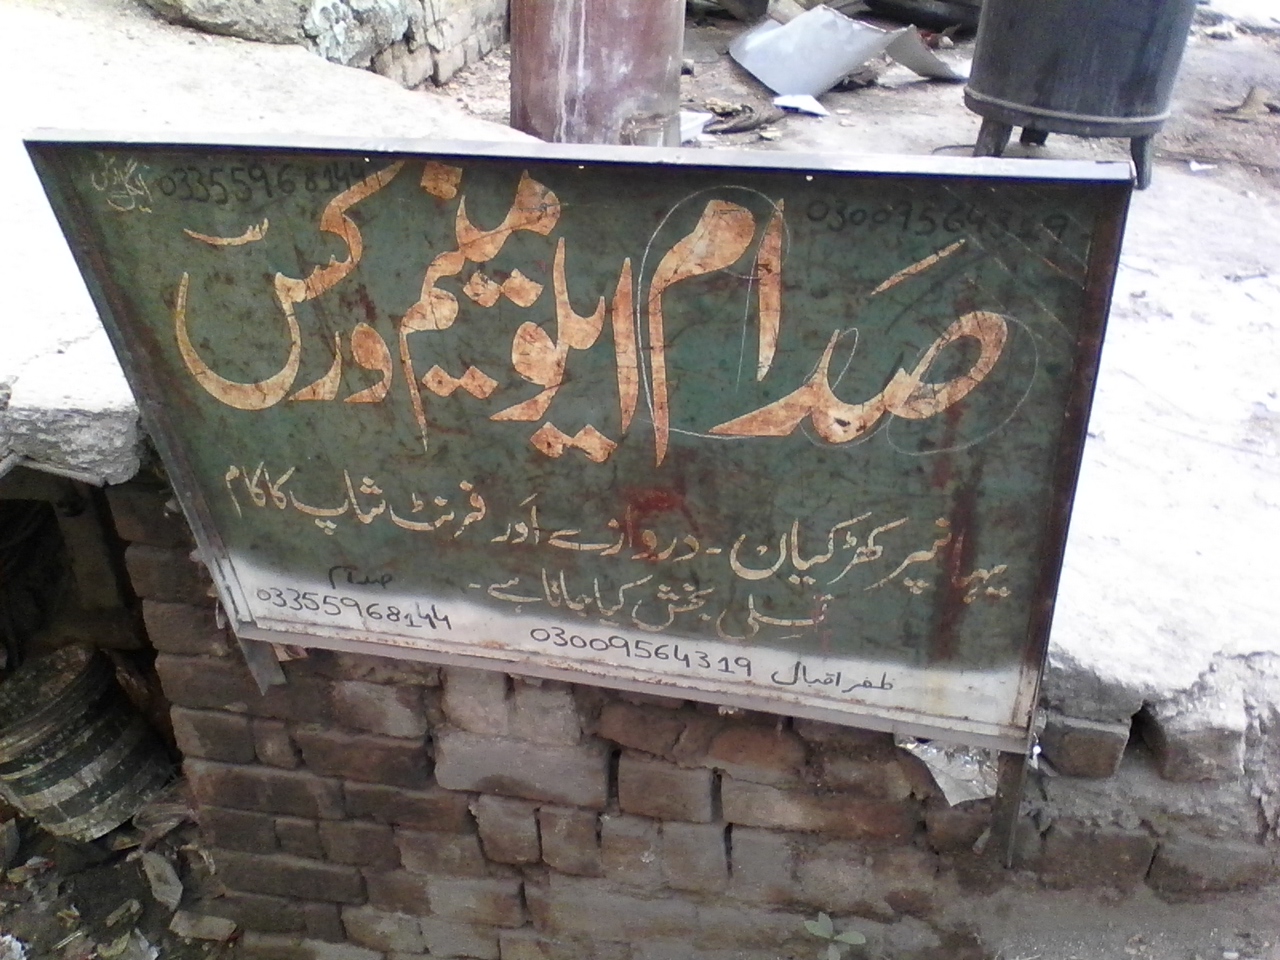 03355968144 03009564319
صدام ایلومینیم ورکس
یہاں پر کھڑکیاں۔ دروازے اَور فرنٹ شاپ کا کام
تسلی بخش کیا جاتا ہے۔
صدام
03355968144
03009564319 ظفر اقبال